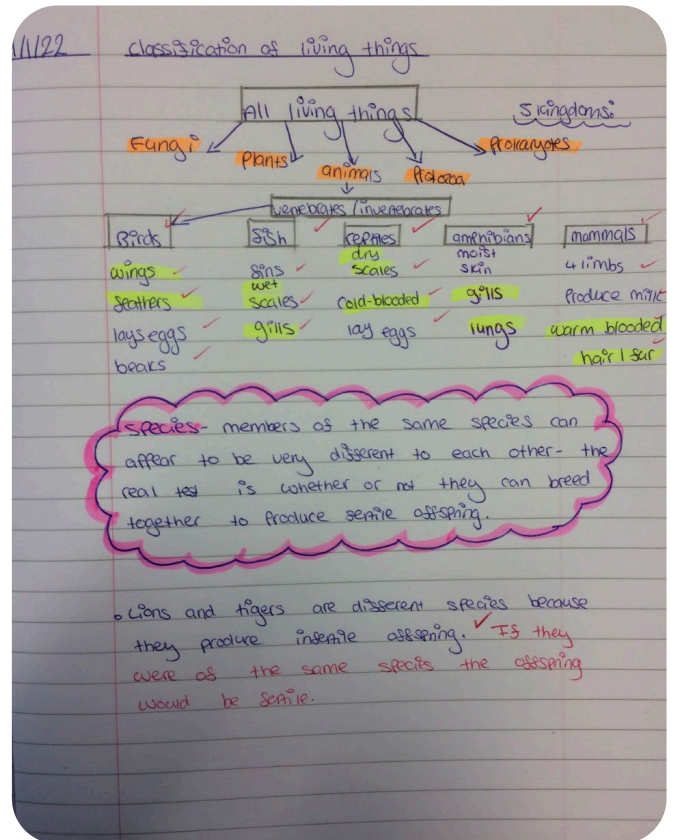 1/1/22 Classification of living things
All living things
5 kingdoms:
Fungi Plants animals Protozoa Prokaryotes
vertebrates/invertebrates
Birds fish reptiles amphibians mammals
wings fins dry scales moist skin 4 limbs
feathers wet scales cold-blooded gills Produce milk
lays eggs gills lay eggs lungs warm blooded
beaks hair/fur
Species- members of the same species can
appear to be very different to each other- the
real test is whether or not they can breed
together to produce fertile offspring.
• Lions and tigers are different species because
they produce infertile offspring. If they
were of the same species the offspring
would be fertile.